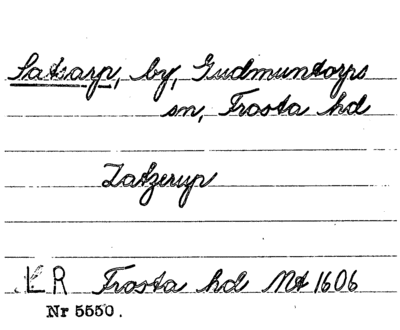 Satsarp, by, Gudmuntorps
sn, Frosta hd
Zatzerup
LR Frosta hd Mt 1606
Nr 5550.